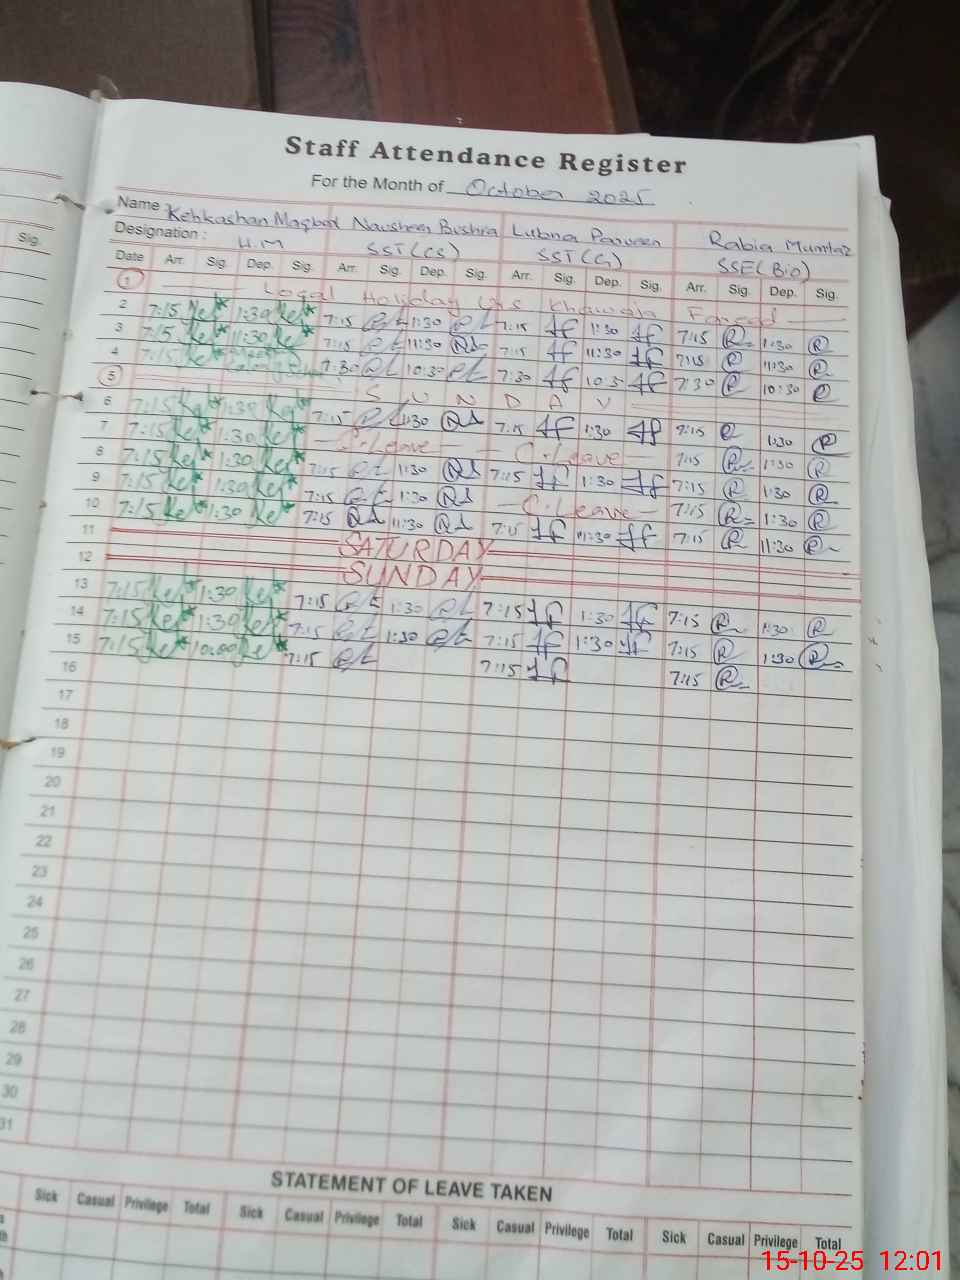 Staff Attendance Register
For the Month of October 2025
Name Kehkashan Maqbol Nausheen Bushra Lubna Parveen Rabia Mumtaz
Designation : H.M SST (CS) SST (G) SSE (Bio)
Sig.
Date Arr. Sig. Dep. Sig. Arr. Sig. Dep. Sig. Arr. Sig. Dep. Sig. Arr. Sig. Dep. Sig.
1 Local Holiday Urs Khawaja Fareed
2 7:15 1:30 7:15 1:30 7:15 1:30 7:15 1:30
3 7:15 11:30 7:15 11:30 7:15 11:30 7:15 11:30
4 7:15 7:30 10:30 7:30 10:3 7:30 10:30
5 S U N D A Y
6 7:15 1:30 7:15 1:30 7:15 1:30 7:15 1:30
7 7:15 1:30 C.Leave C.Leave 7:15 1:30
8 7:15 1:30 7:15 1:30 7:15 1:30 7:15 1:30
9 7:15 1:30 7:15 1:30 C.Leave 7:15 1:30
10 7:15 1:30 7:15 11:30 7:15 11:30 7:15 11:30
11 SATURDAY
12 SUNDAY
13 7:15 1:30 7:15 1:30 7:15 1:30 7:15 1:30
14 7:15 1:30 7:15 1:30 7:15 1:30 7:15 1:30
15 7:15 10:00 7:15 7:15 7:15
16
17
18
19
20
21
22
23
24
25
26
27
28
29
30
31
STATEMENT OF LEAVE TAKEN
Sick Casual Privilege Total Sick Casual Privilege Total Sick Casual Privilege Total Sick Casual Privilege Total
15-10-25 12:01